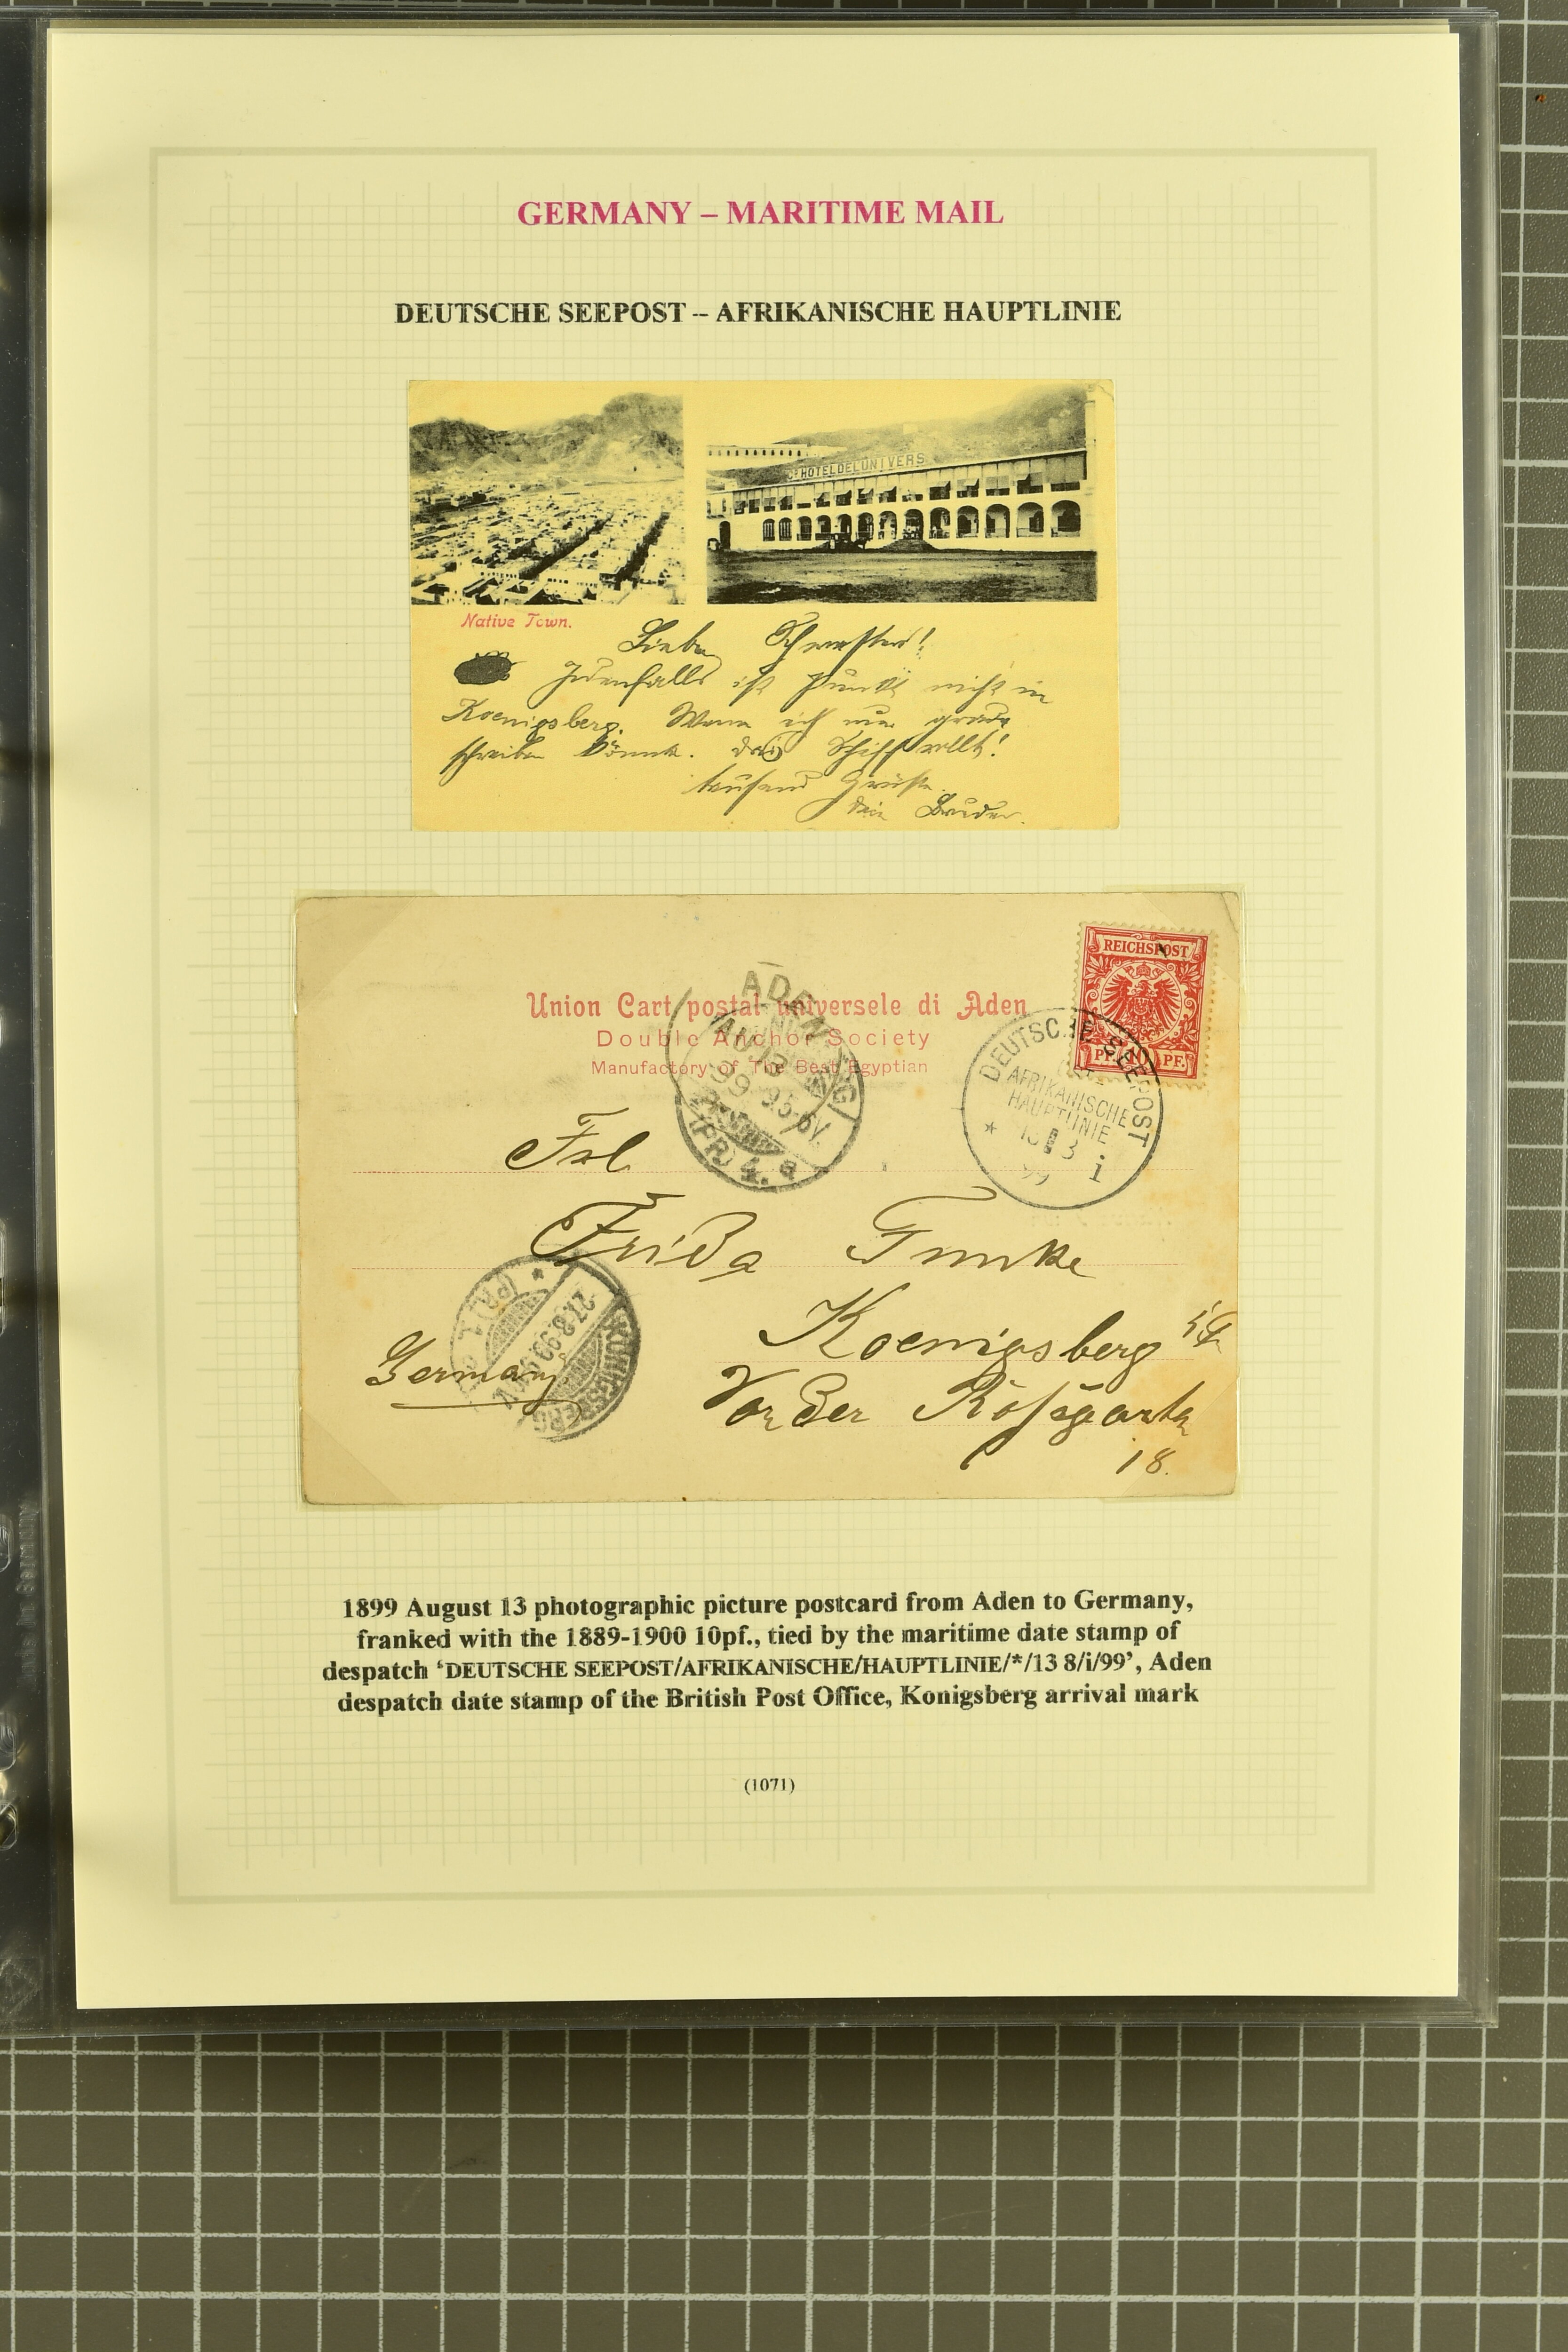 GERMANY – MARITIME MAIL
DEUTSCHE SEEPOST – AFRIKANISCHE HAUPTLINIE
Gd HOTEL DE L'UNIVERS
Native Town.
Liebe Schwester!
Jedenfalls ist Punkt nicht in
Koenigsberg. Wenn ich nur grade
schreiben könnte. das Schiff rollt!
tausend Grüße
dein Bruder.
REICHSPOST
PF. 10 PF.
Union Cart postal universele di Aden
Double Anchor Society
Manufactory of The Best Egyptian
ADEN
AU 13
99
(PR) 4. a
DEUTSCHE SEEPOST
AFRIKANISCHE
HAUPTLINIE
* 13 8
99 i
Frl
Frida Funke
Koenigsberg
Germany
Vorder Roßgarten
18.
KÖNIGSBERG
27.8.99
(PR)1
1899 August 13 photographic picture postcard from Aden to Germany,
franked with the 1889-1900 10pf., tied by the maritime date stamp of
despatch ‘DEUTSCHE SEEPOST/AFRIKANISCHE/HAUPTLINIE/*/13 8/i/99’, Aden
despatch date stamp of the British Post Office, Konigsberg arrival mark
(1071)